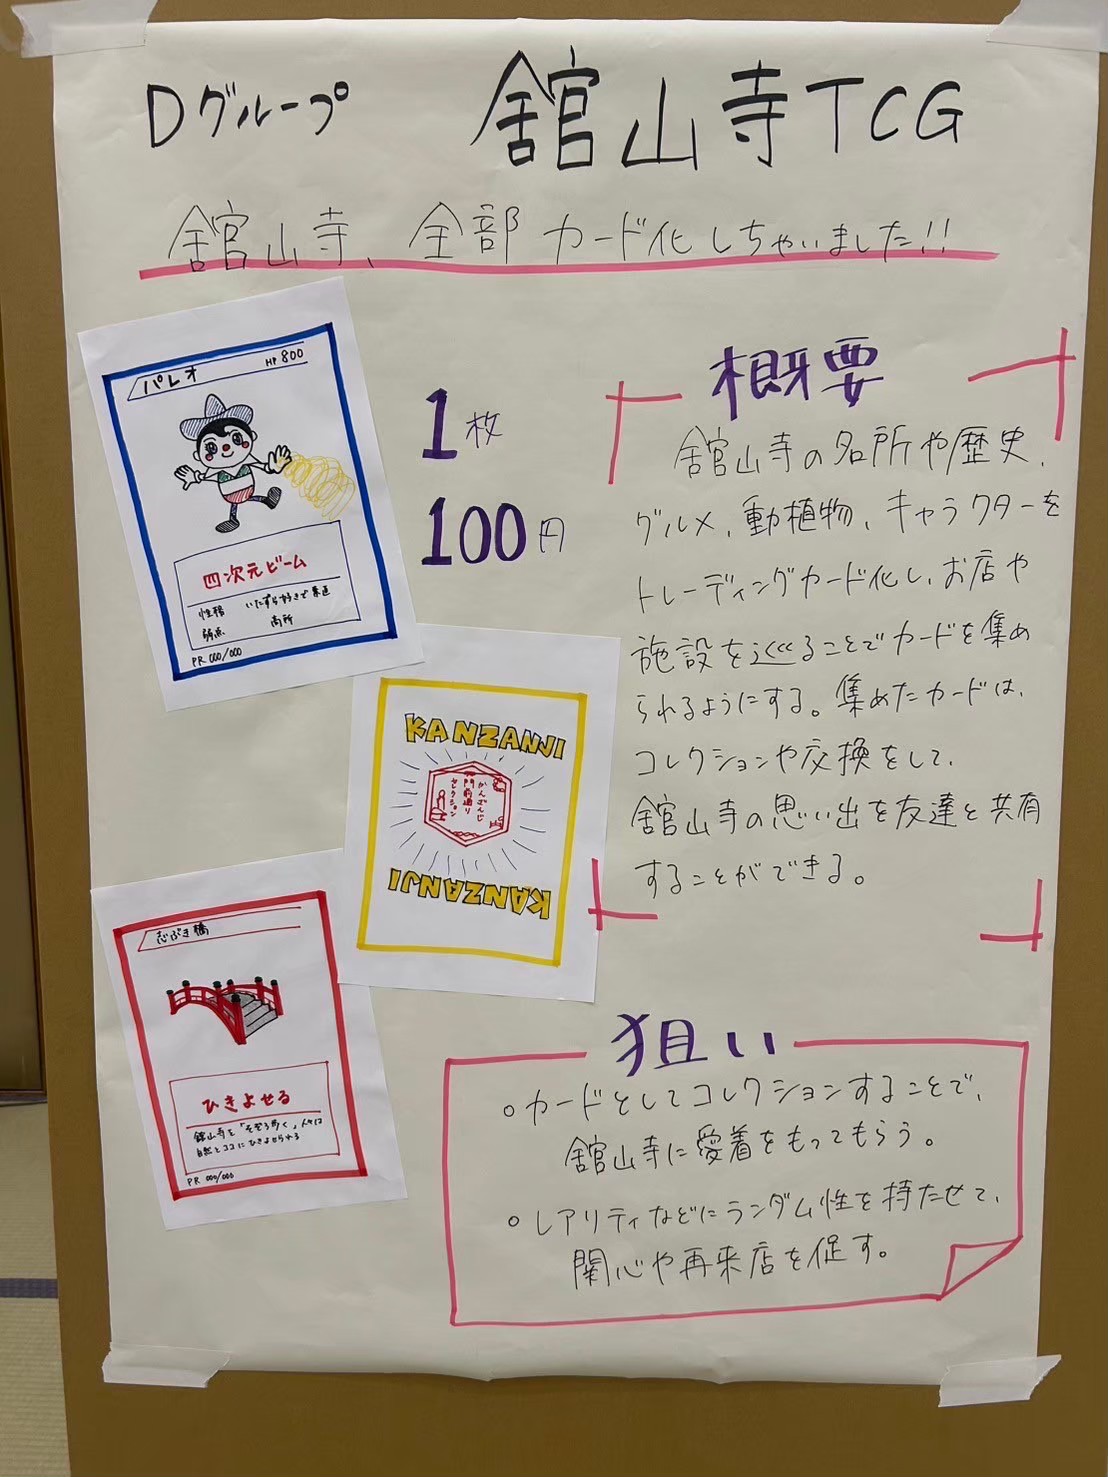 Dグループ
舘山寺TCG
舘山寺、全部カード化しちゃいました!!
パレオ
HP 800
四次元ビーム
性格 いたずら好きで素直
弱点 高所
PR 000/000
1枚
100円
KANZANJI
かんざんじ
門前通り
セレクション
KANZANJI
志ぶき橋
ひきよせる
舘山寺を「そぞろ歩く」人々は
自然とココにひきよせられる
PR 000/000
概要
舘山寺の名所や歴史、
グルメ、動植物、キャラクターを
トレーディングカード化し、お店や
施設を巡ることでカードを集め
られるようにする。集めたカードは、
コレクションや交換をして、
舘山寺の思い出を友達と共有
することができる。
狙い
○カードとしてコレクションすることで、
舘山寺に愛着をもってもらう。
○レアリティなどにランダム性を持たせて、
関心や再来店を促す。